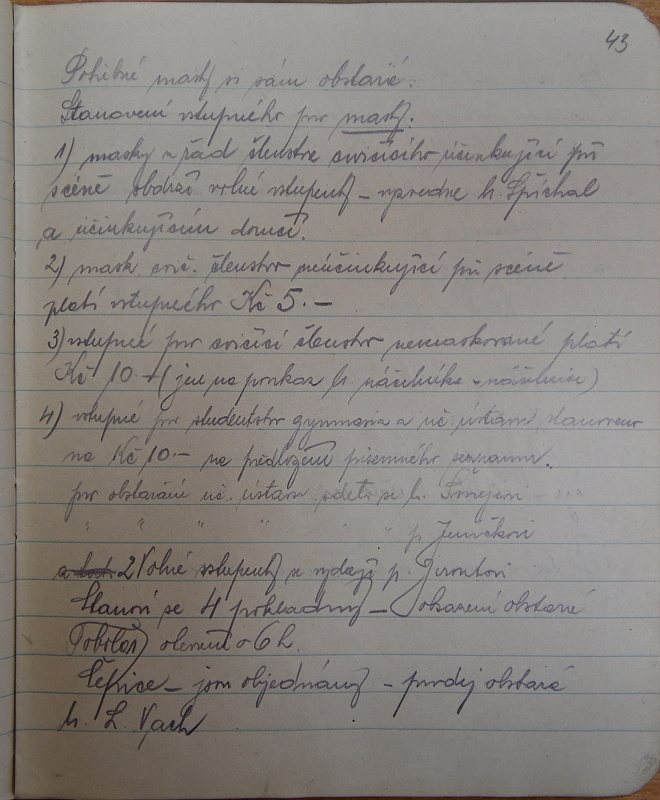 43
Potřebné masky si sám obstará.
Stanovení vstupného pro masky.
1) masky z řad členstva cvičícího účinkující při
scéně obdrží volné vstupenky – vyzvedne b. Špíchal
a účinkujícím doručí.
2) mask. cvič. členstvo neúčinkující při scéně
platí vstupného Kč 5.–
3) vstupné pro cvičící členstvo nemaskované platí
Kč 10.– (jen na poukaz b. náčelníka – náčelnice)
4) vstupné pro studentstvo gymnasia a uč. ústavu stanoveno
na Kč 10.– na předložení písemného seznamu.
pro obstarání uč. ústavu sdělí se b.
" " " " " " p. Jeníčkovi
2 Volné vstupenky se vydají p.
Stanoví se 4 pokladny – obsazení obstará
otevření o 6 h.
Čepice – jsou objednány – prodej obstará
b. L. Vach